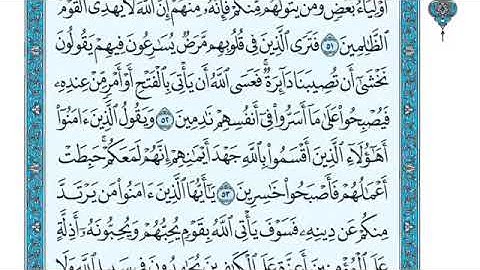 أَوْلِيَآءُ بَعْضٍ وَمَن يَتَوَلَّهُم مِّنكُمْ فَإِنَّهُۥ مِنْهُمْ إِنَّ ٱللَّهَ لَا يَهْدِى ٱلْقَوْمَ
ٱلظَّٰلِمِينَ ٥١ فَتَرَى ٱلَّذِينَ فِى قُلُوبِهِم مَّرَضٌ يُسَٰرِعُونَ فِيهِمْ يَقُولُونَ
نَخْشَىٰٓ أَن تُصِيبَنَا دَآئِرَةٌ فَعَسَى ٱللَّهُ أَن يَأْتِىَ بِٱلْفَتْحِ أَوْ أَمْرٍ مِّنْ عِندِهِۦ
فَيُصْبِحُوا۟ عَلَىٰ مَآ أَسَرُّوا۟ فِىٓ أَنفُسِهِمْ نَٰدِمِينَ ٥٢ وَيَقُولُ ٱلَّذِينَ ءَامَنُوٓا۟
أَهَٰٓؤُلَآءِ ٱلَّذِينَ أَقْسَمُوا۟ بِٱللَّهِ جَهْدَ أَيْمَٰنِهِمْ إِنَّهُمْ لَمَعَكُمْ حَبِطَتْ
أَعْمَٰلُهُمْ فَأَصْبَحُوا۟ خَٰسِرِينَ ٥٣ يَٰٓأَيُّهَا ٱلَّذِينَ ءَامَنُوا۟ مَن يَرْتَدَّ
مِنكُمْ عَن دِينِهِۦ فَسَوْفَ يَأْتِى ٱللَّهُ بِقَوْمٍ يُحِبُّهُمْ وَيُحِبُّونَهُۥٓ أَذِلَّةٍ
عَلَى ٱلْمُؤْمِنِينَ أَعِزَّةٍ عَلَى ٱلْكَٰفِرِينَ يُجَٰهِدُونَ فِى سَبِيلِ ٱللَّهِ وَلَا